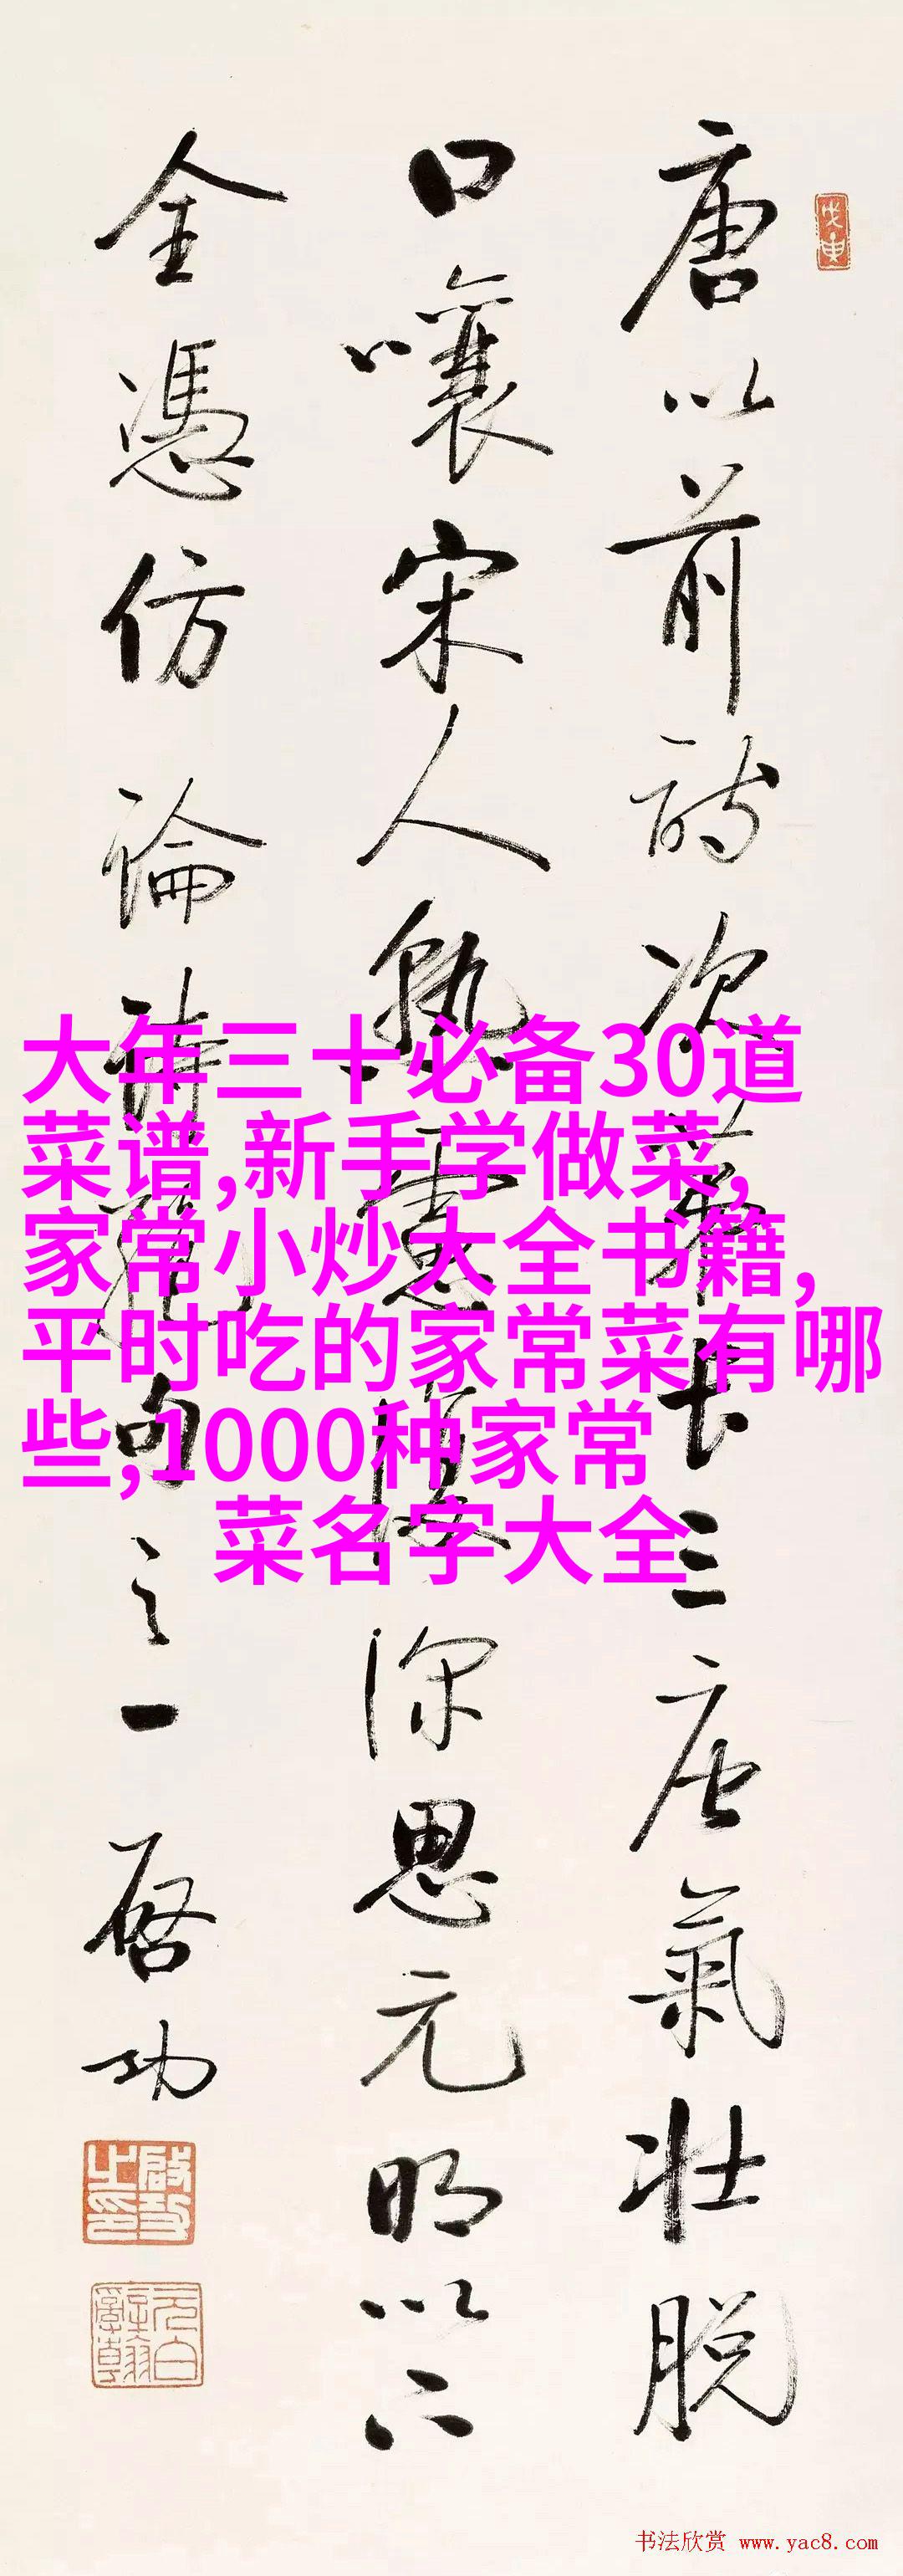 唐以前詩次第長三唐氣壯脫
口嚷宋人熟慮深思元明以下
全憑仿論詩絕句之一
啓功
戊申
啟功之印
元白
大年三十必备30道
菜谱,新手学做菜,
家常小炒大全书籍,
平时吃的家常菜有哪
些,1000种家常
菜名字大全
书法欣赏 www.yac8.com